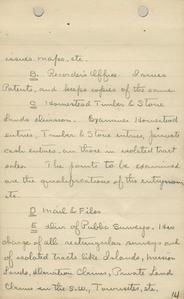 issues maps, etc.
B. Recorder's Office. Issues
Patents, and keeps copies of the same.
C Homestead Timber & Stone
Lands division. Examines Homestead
entries, Timber & Stone entries, private
cash entries, and those in isolated tract
sales. The point to be examined
are the qualifications of the entryman
etc.
D Mail & Files
E Div of Public Surveys. Has
charge of all rectangular surveys and
of isolated tracts like Islands, Mission
Lands, Donation Claims, Private Land
Claims in the S.W., Townsites, etc.